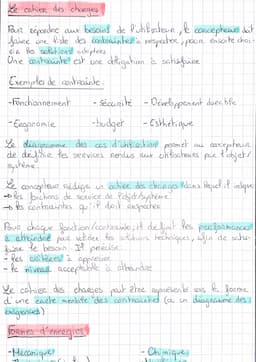 Le cahier des charges
Pour répondre aux besoins de l'utilisateur, le concepteur doit
faire une liste des contraintes à respecter, pour ensuite choi-
sir les solutions adaptées
Une contrainte est une obligation à satisfaire
Exemples de contrainte:
-Fonctionnement - Sécurité - Développement durable
-Ergonomie -budget - Esthétique
Le diagramme des cas d'utilisation permet au concepteur
de définir les services rendus aux utilisateurs par l'objet/
système.
Le concepteur rédige un cahier des charges dans lequel il indique
→ les fonctions de service de l'objet/système.
→ les contraintes qu'il doit respecter
Pour chaque fonction/contrainte, il définit les performances
à atteindre pour valider les solutions techniques, afin de satis-
faire le besoin. Il précise:
- les critères à apprécier
- le niveau acceptable à atteindre
Le cahier des charges peut être représenté sous la forme
d'une carte mentale des contraintes (ou un diagramme des
exigences)
Formes d'énergies
-Mécanique -Chimique